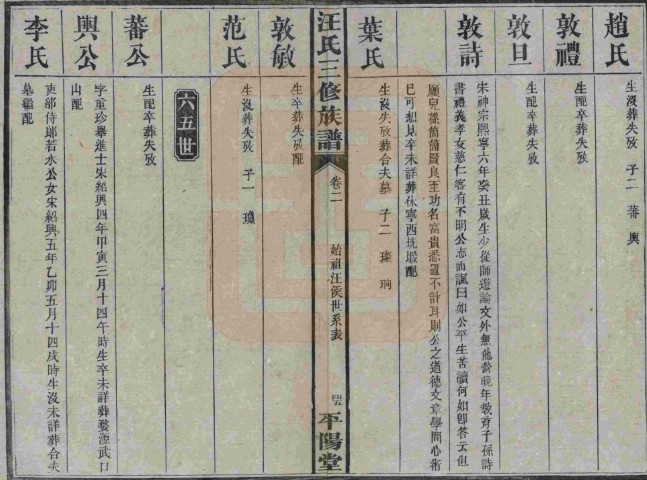 趙氏
生沒葬失攷 子二 蕃 輿
敦禮
生配卒葬失攷
敦旦
生配卒葬失攷
敦詩
宋神宗熙寧六年癸丑歲生少從師遊論文外無他嘗晚年教育子孫詩
書禮義孝友慈仁客有不明公志而諷曰如公平生苦讀何如卽答云但
願兒孫箇箇賢良至功名富貴憑置不計耳則公之道德文章學問心術
已可想見卒未詳葬休寧西坑塅配
葉氏
生沒失攷葬合夫墓 子二 璨 珦
敦敏
生卒葬失攷配
范氏
生沒葬失攷 子一 瓊
汪氏三修族譜
卷二
始祖汪侯世系表
平陽堂
六五世
蕃公
生配卒葬失攷
輿公
字重珍舉進士宋紹興四年甲寅三月十四午時生卒未詳葬婺源武口
山配
李氏
吏部侍郎若水公女宋紹興五年乙卯五月十四戌時生沒未詳葬合夫
墓繼配